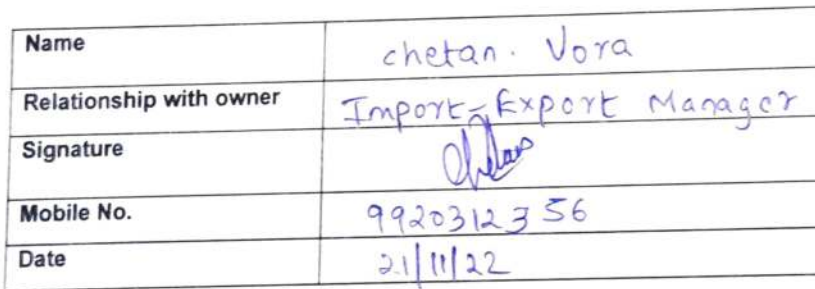 Name chetan. Vora
Relationship with owner Import-Export Manager
Signature Chetan
Mobile No. 9920312356
Date 21/11/22